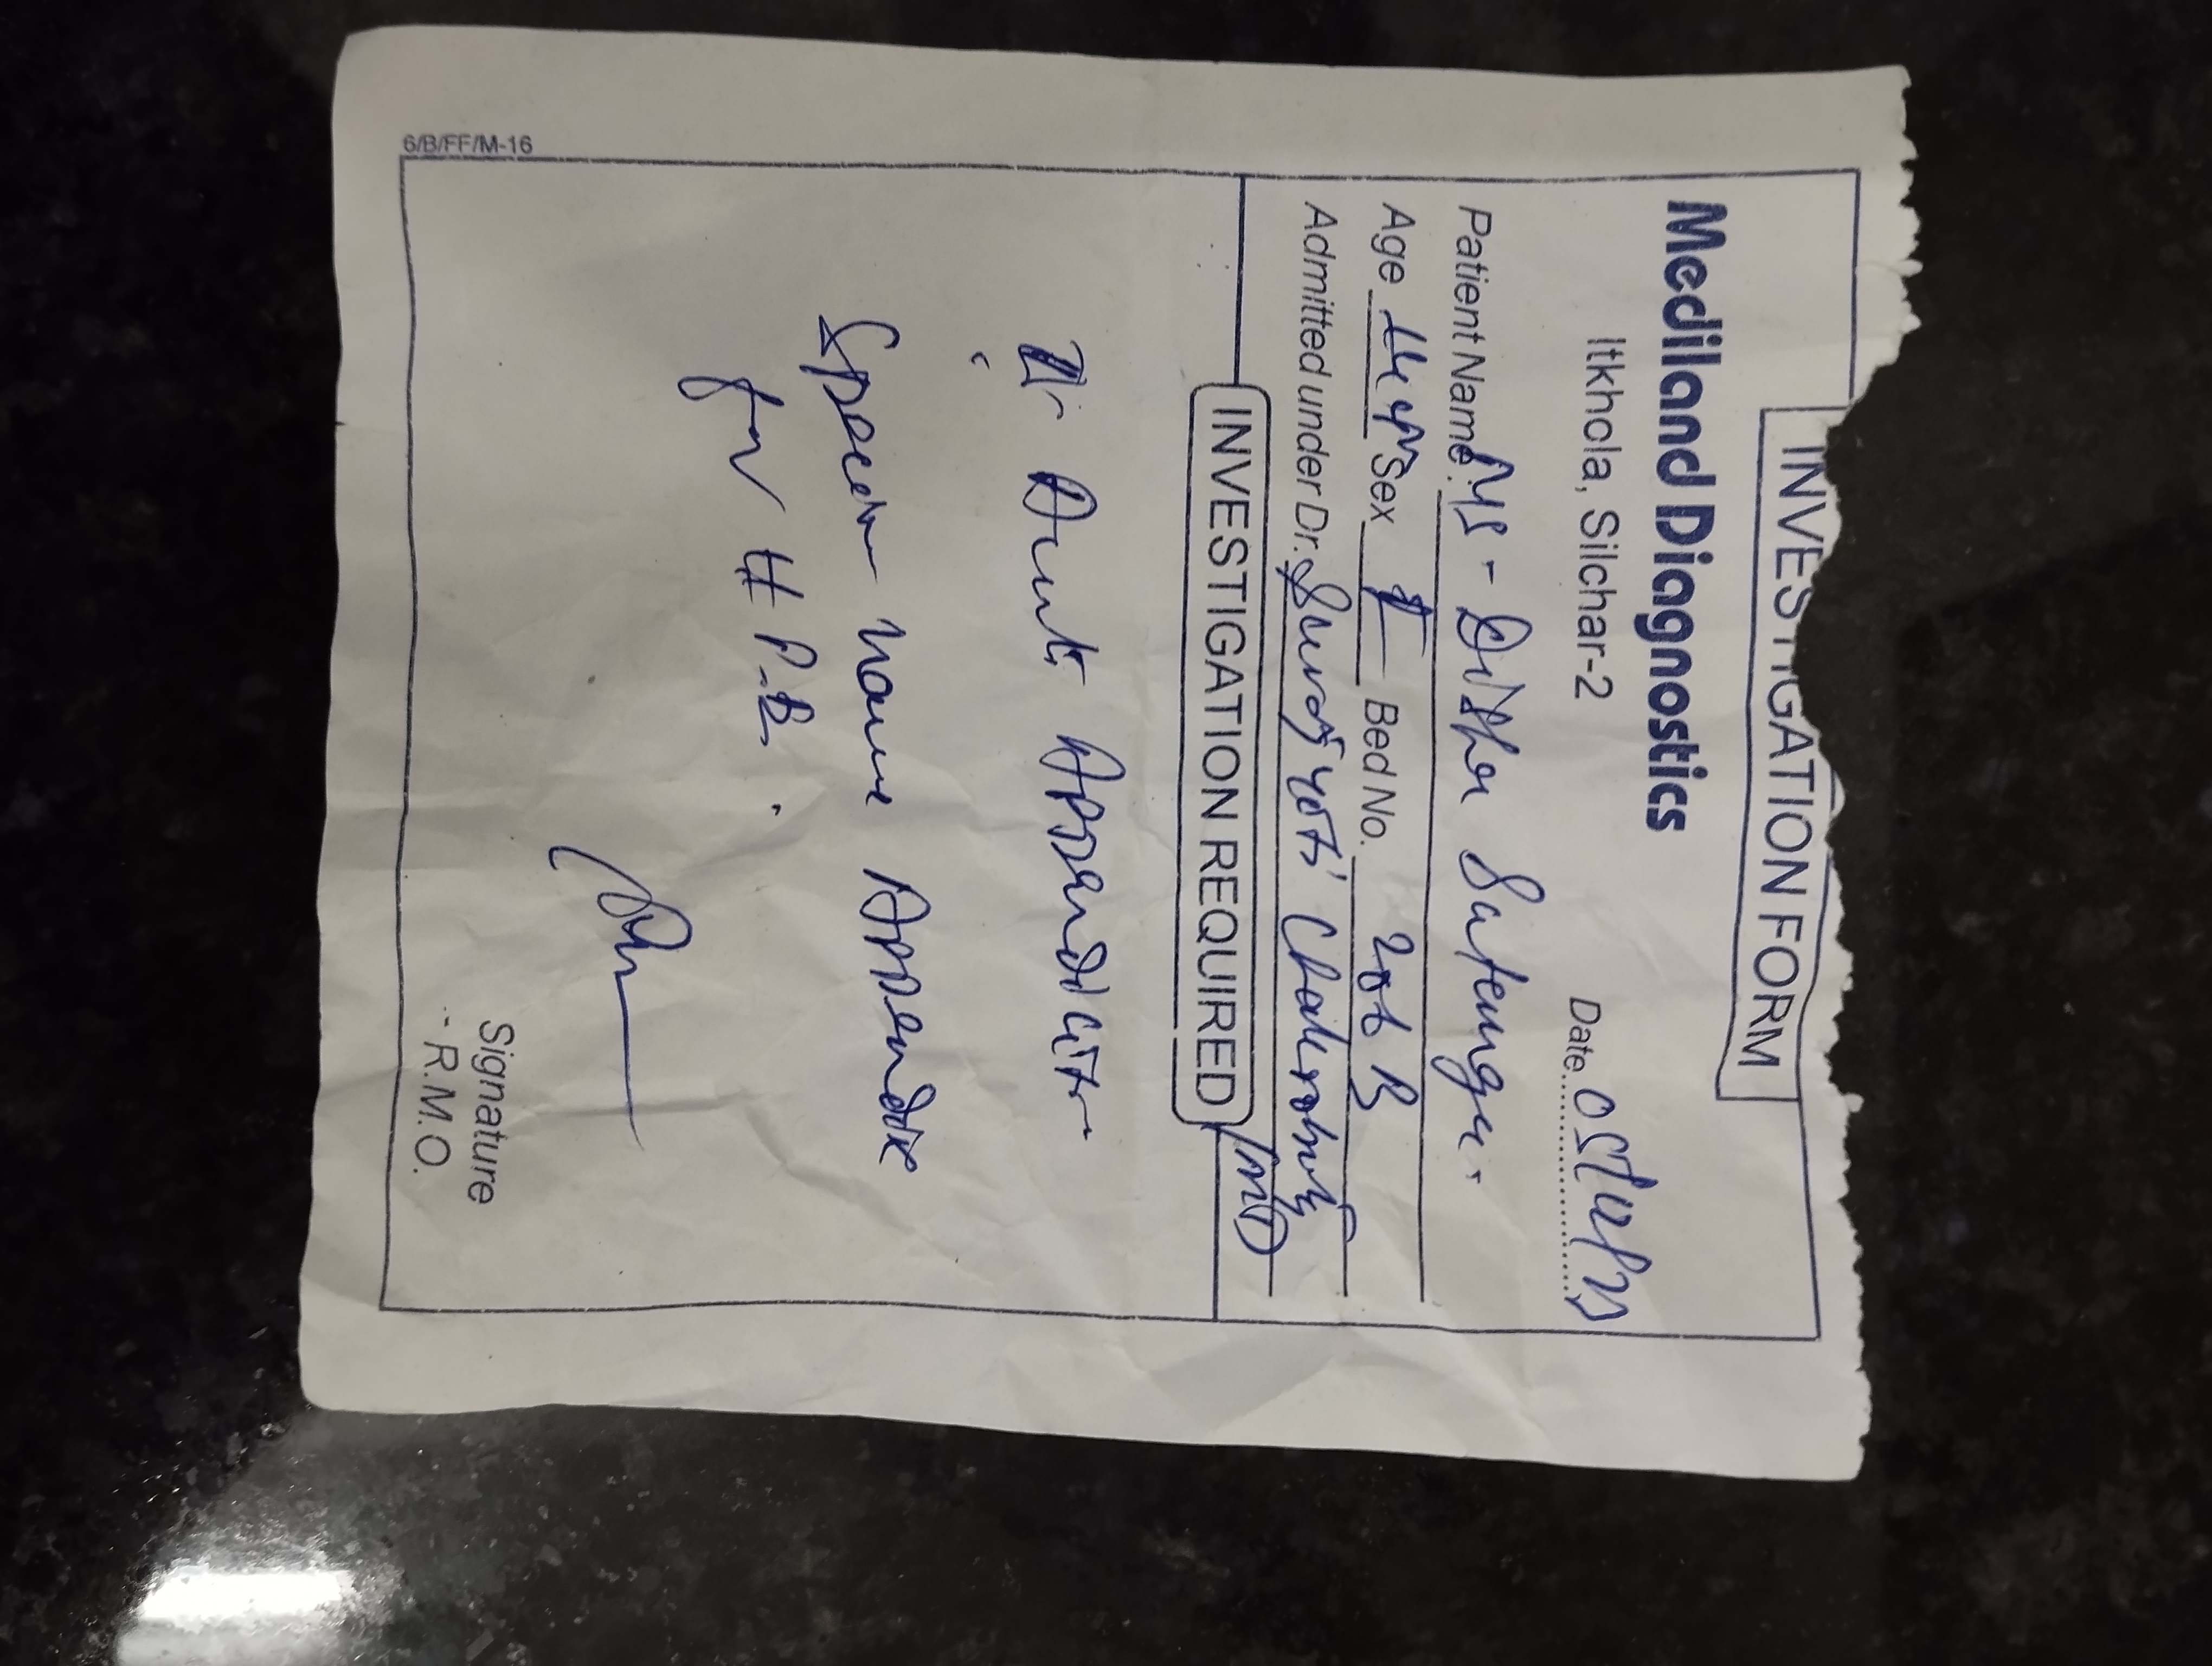 INVESTIGATION FORM
Mediland Diagnostics
Itkhola, Silchar-2
Date
Patient Name : MS - Disha Satenga
Age Sex F Bed No. 206 B
Admitted under Dr. Chakraborty
INVESTIGATION REQUIRED
Acute Appendicitis
Specimen name Appendix
for H.P.E.
Signature
R.M.O.
6/B/FF/M-16